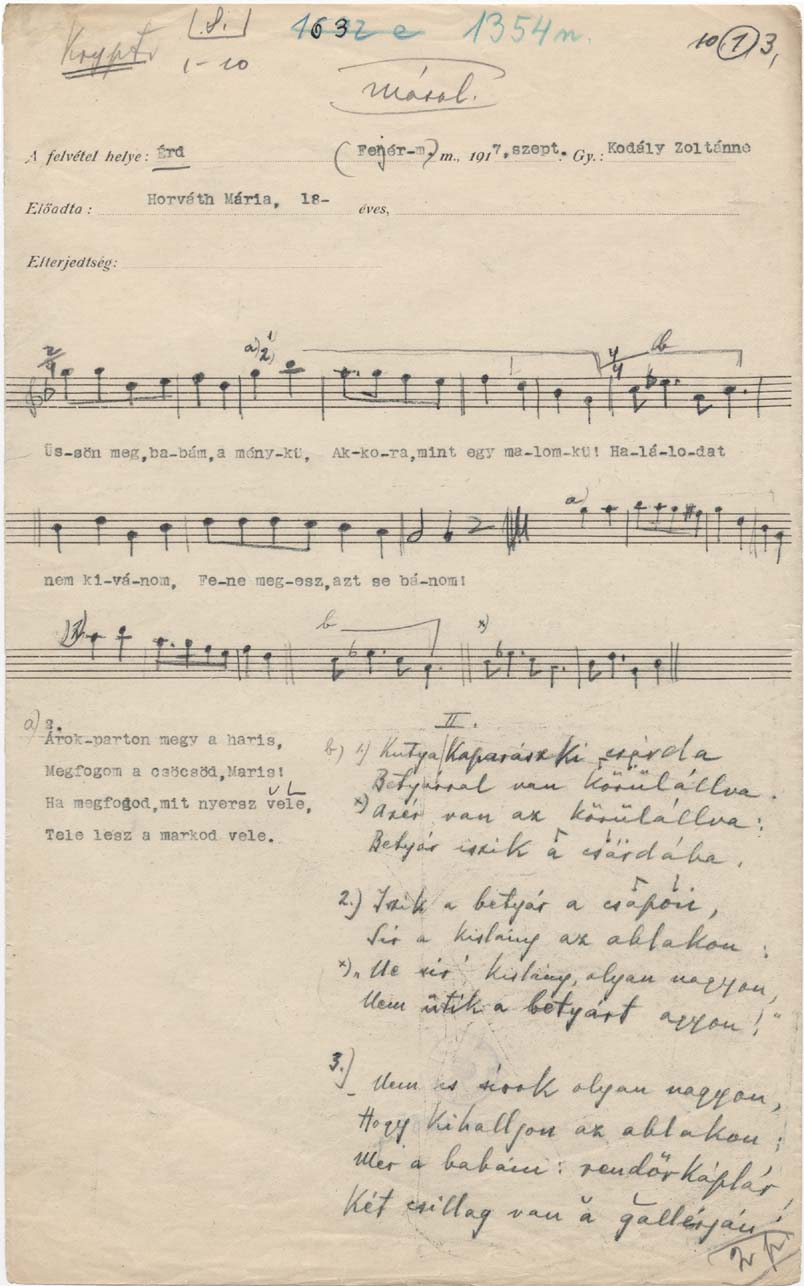 [8.] 1632 e 1354 n. 10 (1) 3,
1-10
Másol.
A felvétel helye: Érd (Fehér-m.) m., 1917, szept. Gy.: Kodály Zoltánne
Előadta: Horváth Mária, 18- éves,
Elterjedtség:
a) 2) b
Üs-sön meg,ba-bám,a mény-kü, Ak-ko-ra,mint egy ma-lom-kü! Ha-lá-lo-dat
a)
nem ki-vá-nom, Fe-ne meg-esz,azt se bá-nom!
b x)
a) 2.
Árok-parton megy a haris,
Megfogom a csöcsöd,Maris!
Ha megfogod,mit nyersz vele,
Tele lesz a markod vele.
II.
b) 1) Kutya Kaparászki csárda
Betyárral van körülállva.
x) Azér van az körülállva:
Betyár iszik a csárdába.
2.) Iszik a betyár a csapon,
Sir a kislány az ablakon:
x) „Ne sir' kislány, olyan nagyon,
Nem ütik a betyárt agyon!"
3.) - Nem is sirok olyan nagyon,
Hogy kihalljon az ablakon;
Mer a babám: rendőrkáplár,
Két csillag van a gallérján!